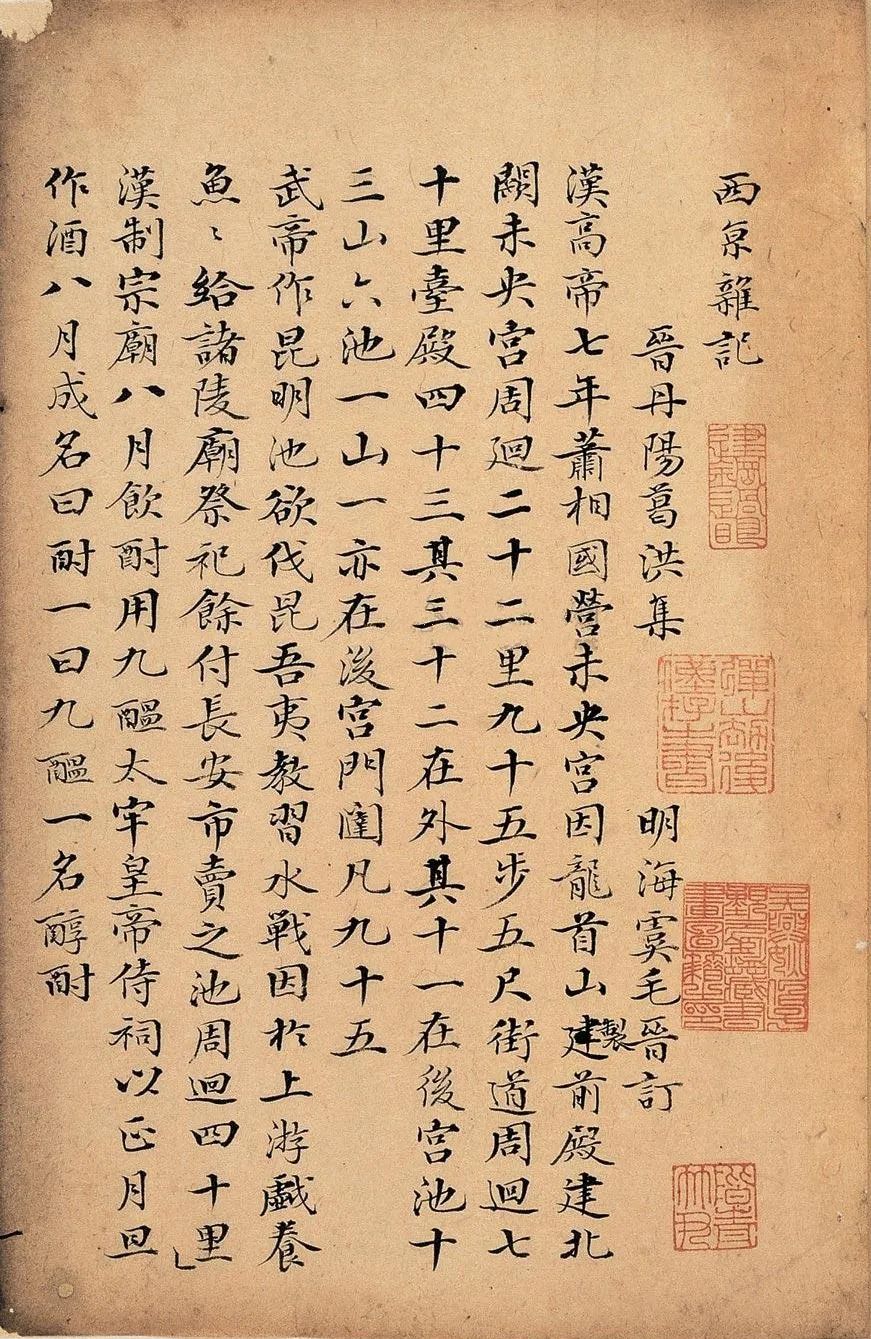 西京雜記
晉丹陽葛洪集 明海虞毛晉訂
漢高帝七年蕭相國營未央宮因龍首山建製前殿建北
闕未央宮周迴二十二里九十五步五尺街道周迴七
十里臺殿四十三其三十二在外其十一在後宮池十
三山六池一山一亦在後宮門闥凡九十五
武帝作昆明池欲伐昆吾夷教習水戰因於上游戲養
魚〻給諸陵廟祭祀餘付長安市賣之池周迴四十里
漢制宗廟八月飲酎用九醞太牢皇帝侍祠以正月旦
作酒八月成名曰酎一曰九醞一名醇酎